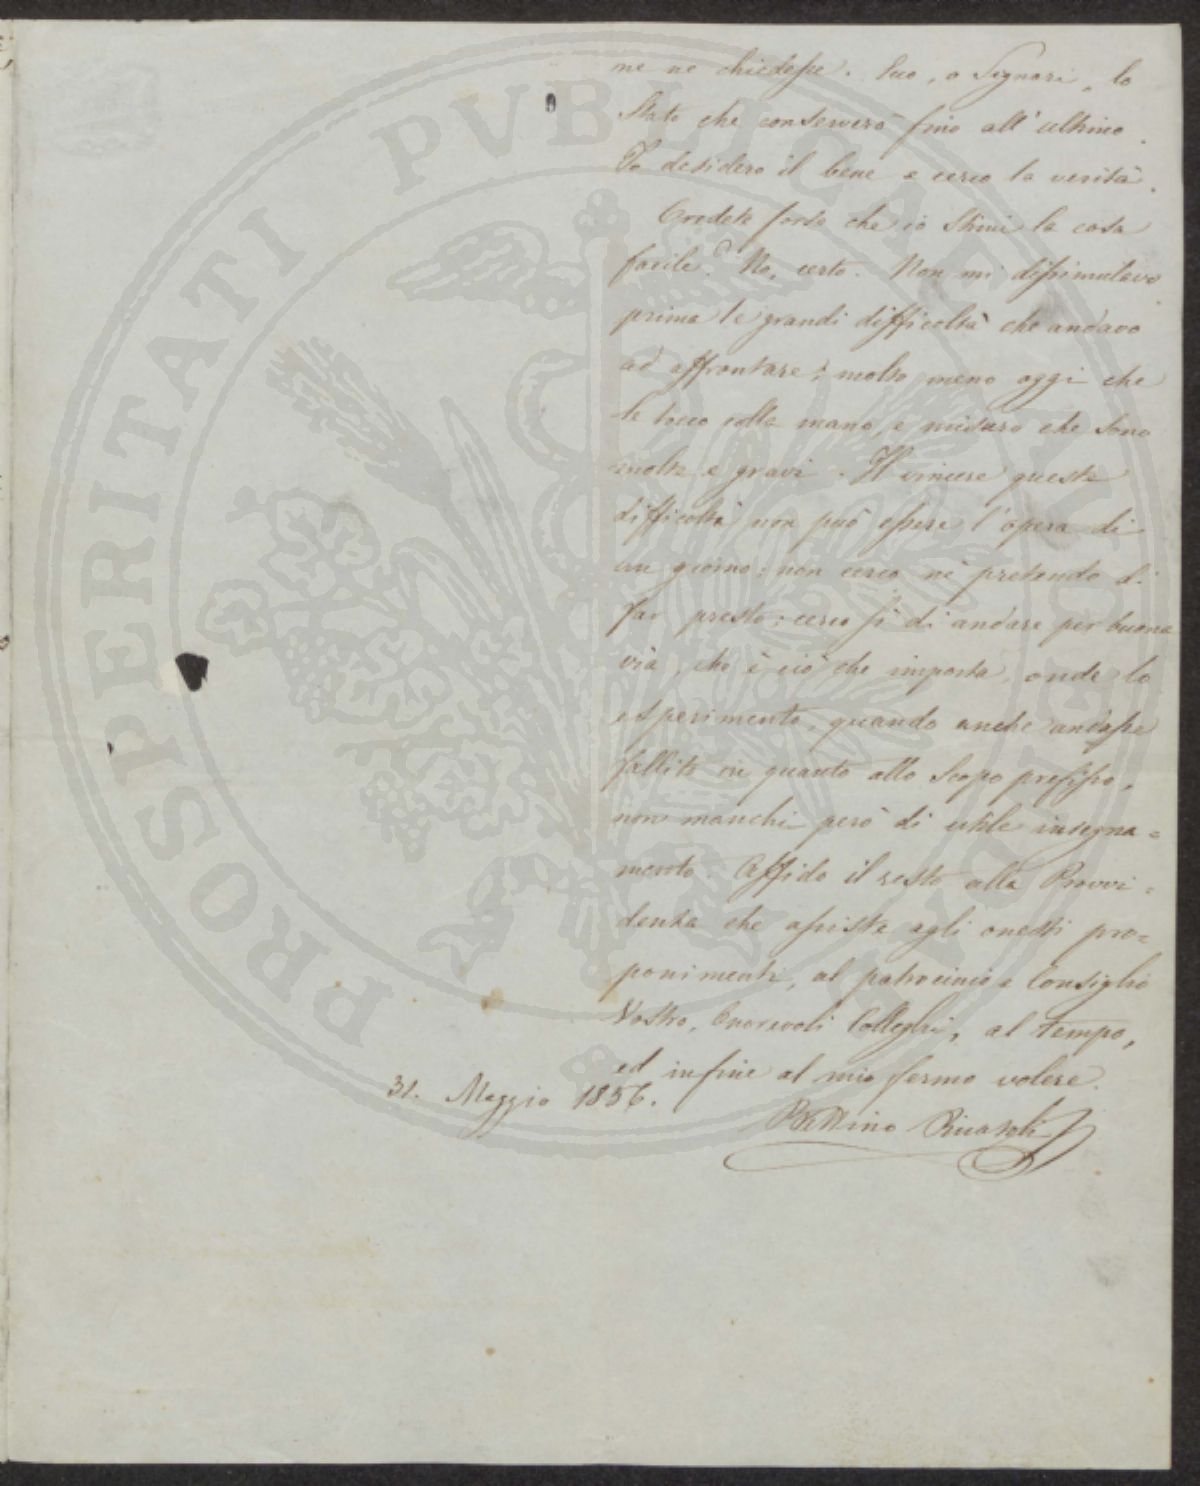 me ne chiedesse. Ecco, o Signori, lo
Stato che conserverò fino all'ultimo.
Io desidero il bene e cerco la verità.
Credete forse che io stimi la cosa
facile? No, certo. Non mi dissimulavo
prima le grandi difficoltà che andavo
ad affrontare; molto meno oggi che
le tocco colla mano, e misuro che sono
molte e gravi. Il vincere queste
difficoltà non può essere l'opera di
un giorno: non cerco nè pretendo di
far presto; cerco sì di andare per buona
via, che è ciò che importa, onde lo
esperimento, quando anche andasse
fallito in quanto allo Scopo prefisso,
non manchi però di utile insegna=
mento. Affido il resto alla Provvi=
denza che assiste agli onesti pro=
ponimenti, al patrocinio e Consiglio
Vostro, Onorevoli Colleghi, al tempo,
ed infine al mio fermo volere.
31. Maggio 1856.
Bettino Ricasoli
PROSPERITATI PVBLICAE